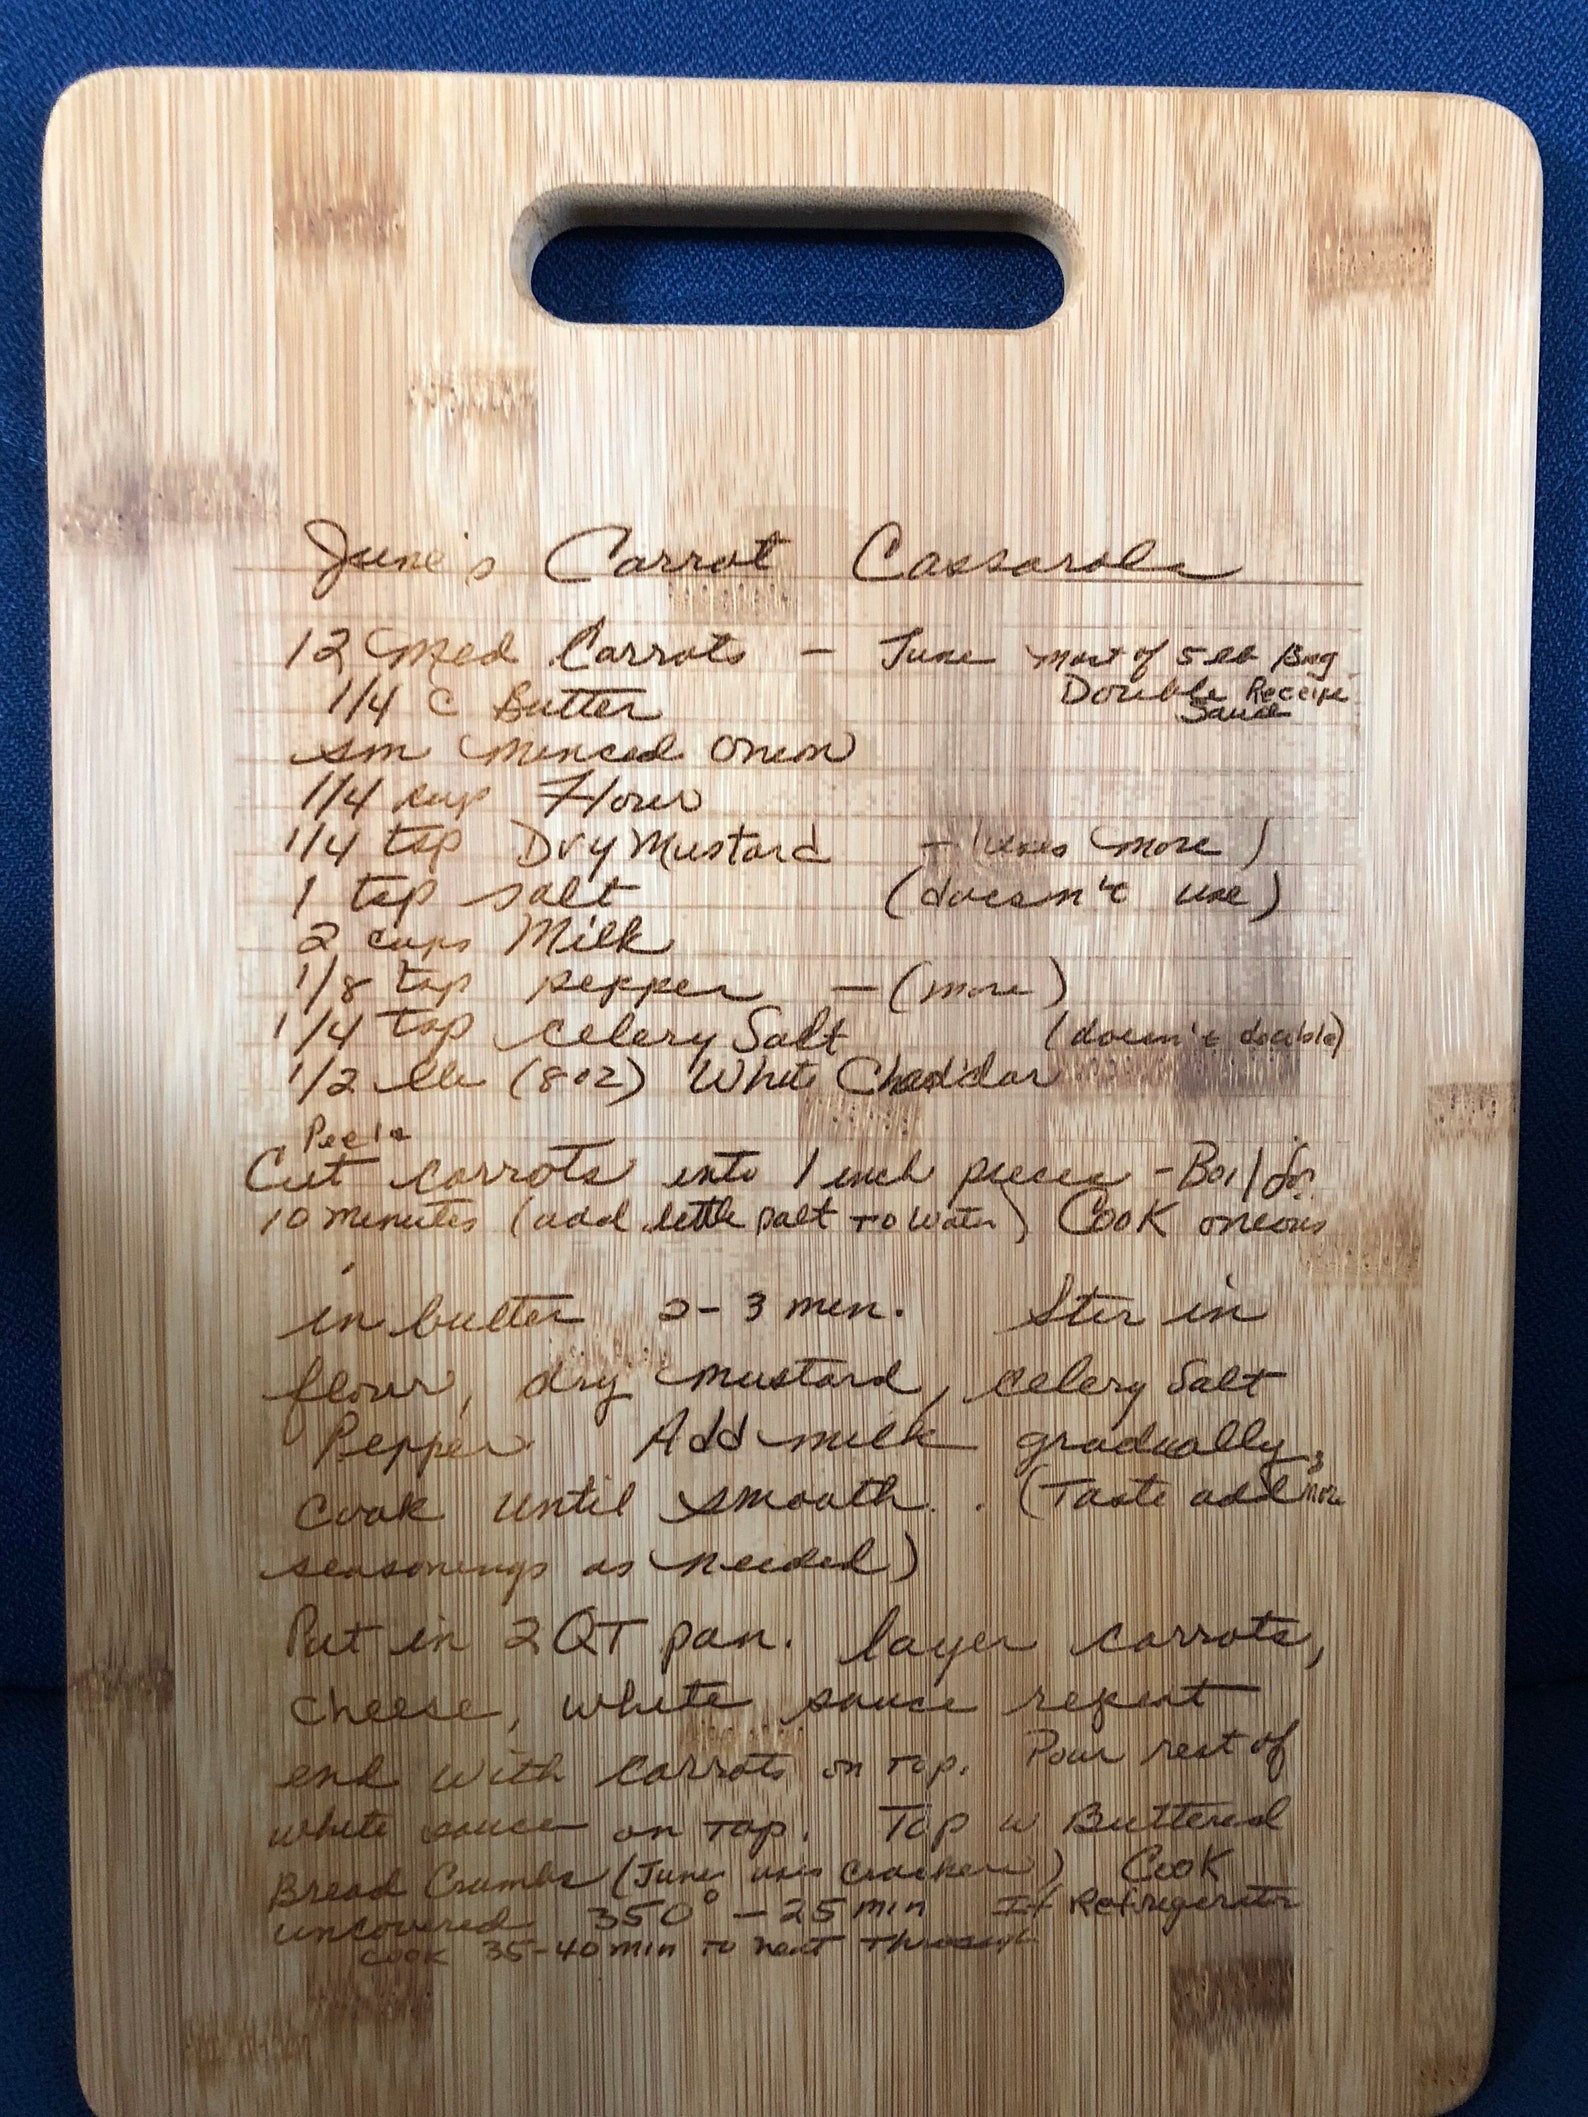 June's Carrot Cassarole
12 Med Carrots - June most of 5 lb Bag
1/4 C Butter Double Receipe
Sauce
sm minced onion
1/4 cup Flour
1/4 tsp Dry Mustard - uses more)
1 tsp salt (doesn't use)
2 cups Milk
1/8 tsp pepper - (more)
1/4 tsp celery Salt (doesn't double)
1/2 lb (8oz) White Cheddar
Peel &
Cut carrots into 1 inch pieces - Boil for
10 minutes (add little salt to water) Cook onions
in butter 2-3 min. Stir in
flour, dry mustard, celery Salt
Pepper Add milk gradually,
Cook until smooth. (Taste add more
seasonings as needed)
Put in 2 QT pan. layer carrots,
cheese, white sauce repeat
end with carrots on top. Pour rest of
white sauce on top. Top w Buttered
Bread Crumbs (June uses crackers) Cook
uncovered 350° - 25 min If Refrigerator
cook 35-40 min to heat through